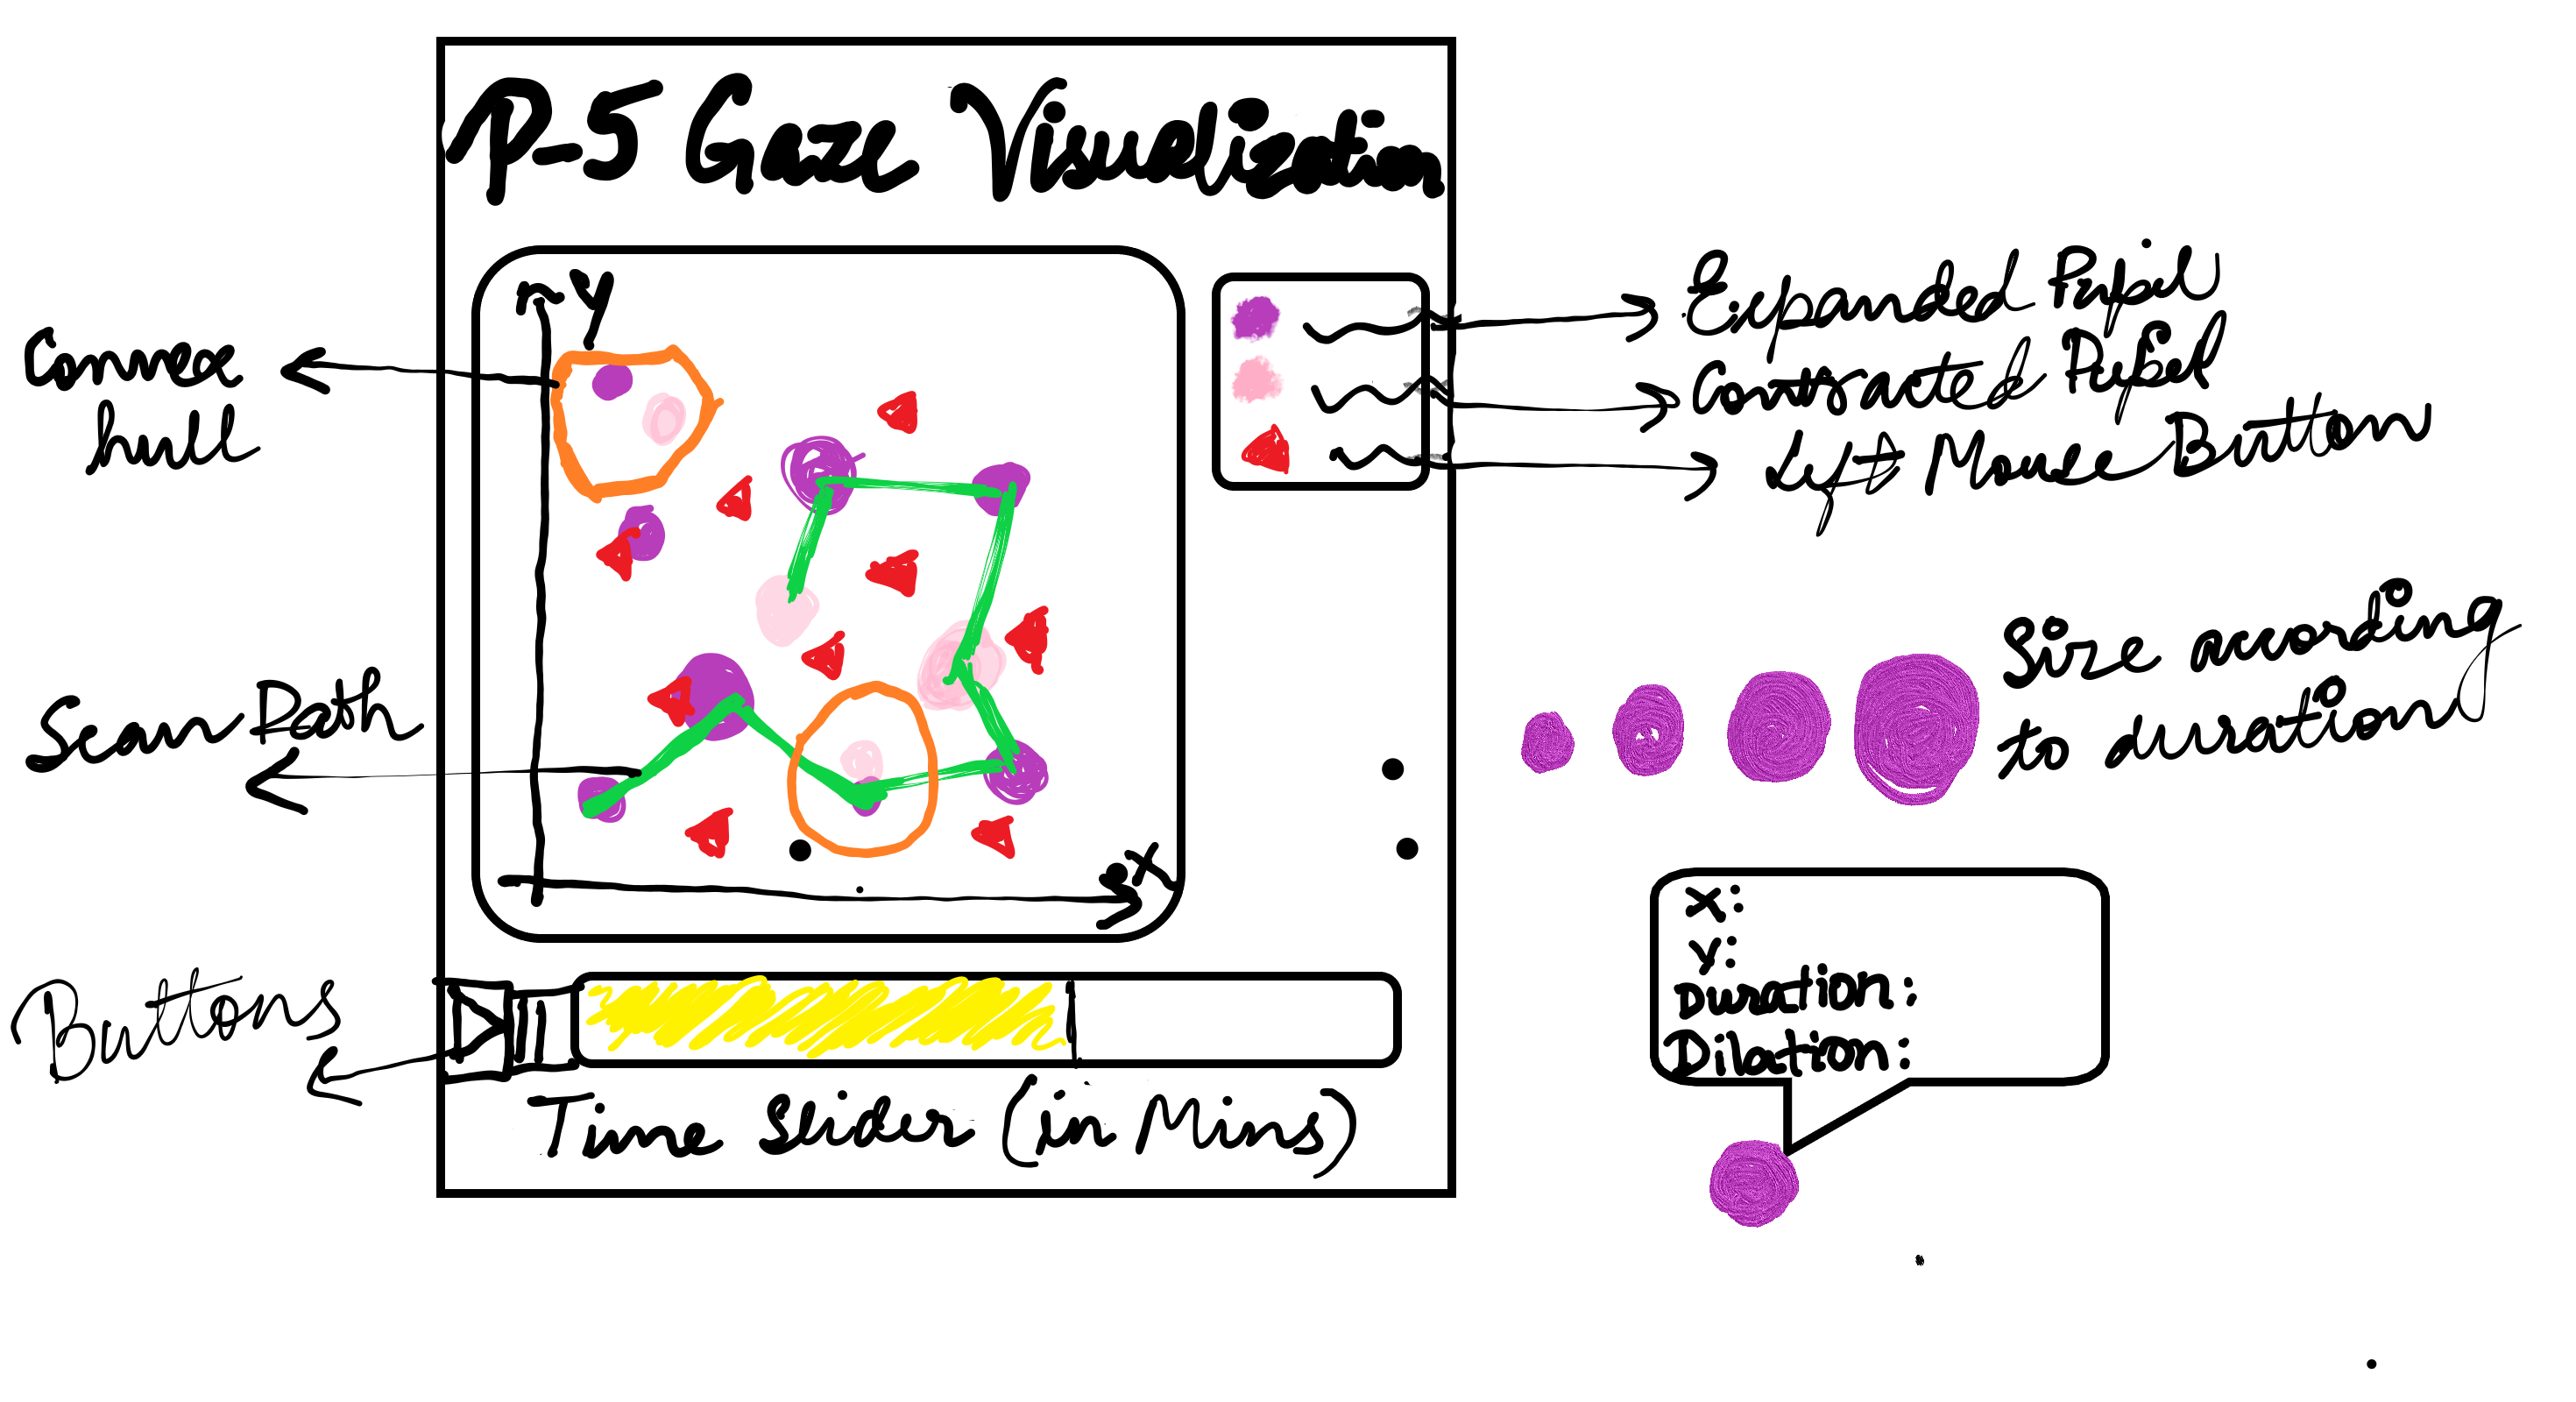 P-5 Gaze Visualization
Y
X
Convex
hull
Scan Path
Buttons
Time Slider (in Mins)
Expanded Pupil
Contracted Pupil
Left Mouse Button
Size according
to duration
X:
Y:
Duration:
Dilation: